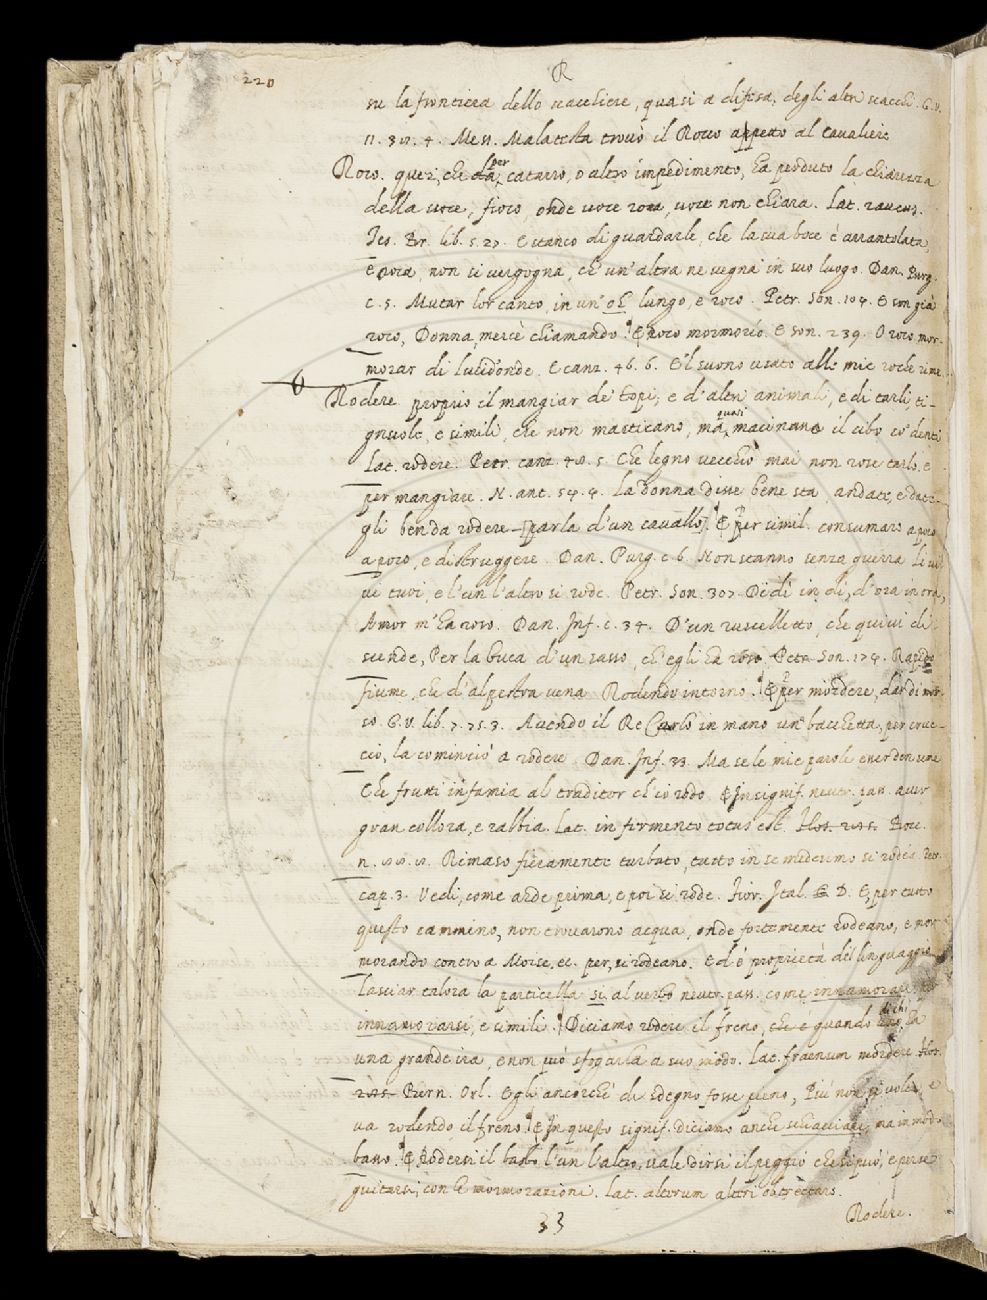 220
R
su la frontiera dello scacchiere, quasi a difesa, degli altri scacchi. G. V.
11. 32. 4. Mess. Malatesta trovò il Rocco appetto al Cavaliere
Roco. quei, che per catarro, o altro impedimento, ha perduto la chiarezza
della voce, fioco, onde voce roca, voce non chiara. Lat. raucus.
Tes. Br. lib. 5. 27. E stanco di guardarle, che la sua boce è arrantolata,
e roca non si vergogna, ch' un' altra ne vegna in suo luogo. Dan. Purg.
c. 5. Mutar lor canto, in un' oh lungo, e roco. Petr. Son. 104. E son già
roco, Donna, mercè chiamando. E roco mormorío. E son. 239. O roco mor-
morar di lucid' onde. E canz. 46. 6. E 'l suono usato alle mie roche rime.
Rodere. proprio il mangiar de' topi, e d' altri animali, e di tarli, ti-
gnuole, e simili, che non masticano, ma quasi macinano il cibo co' denti
Lat. rodere. Petr. canz. 48. 5. Che legno vecchio mai non rose tarlo. e
per mangiare. N. ant. 54. 4. La donna disse bene sta andate, e date-
gli ben da rodere [parla d' un cavallo]. E per simil. consumare a poco
a poco, e distruggere. Dan. Purg. c. 6. Non stanno senza guerra li vi-
vi tuoi, e l' un l' altro si rode. Petr. Son. 307. Di dì in dì, d' ora in ora,
Amor m' ha roso. Dan. Inf. c. 34. D' un ruscelletto, che quivi di-
scende, Per la buca d' un sasso, ch' egli ha roso. Petr. Son. 174. Rapido
fiume, che d' alpestra vena Rodendo intorno. E per mordere, dar di mor-
so. G. V. lib. 7. 75. 3. Avendo il Re Carlo in mano una bacchetta, per cruc-
cio, la cominciò a rodere. Dan. Inf. 33. Ma se le mie parole esser den seme
Che frutti infamia al traditor ch' io rodo. E In signif. neutr. pass. aver
gran collora, e rabbia. Lat. in fermento totus est. Bocc.
n. Rimaso fieramente turbato, tutto in se medesimo si rodea. Petr.
cap. 3. Vedi, come arde prima, e poi si rode. Fior. Ital. D. E, per tutto
questo cammino, non trovarono acqua, onde fortemente rodeano, e mor-
morando contro a Moise, ec. per, si rodeano. Ed è proprietà del linguaggio
lasciar talora la particella si al verbo neutr. pass. come innamorare
innamorarsi, e simili. Diciamo rodere il freno, quando di chi ha
una grande ira, e non può sfogarla a suo modo. Lat. fraenum mordere
Bern. Orl. Egli ancorchè di sdegno fosse pieno, Più non si vole, e
va rodendo il freno. E In questo signif. diciamo anche schiacciare, ma in modo
basso. E Rodersi il basto l' un l' altro, vale dirsi il peggio che si può, e perse-
guitarsi, con le mormorazioni. Lat. alterum alteri obtrectare.
Rodere.
33